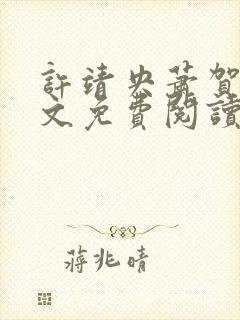 許靖央蕭賀
文免費閱讀
蔣兆晴